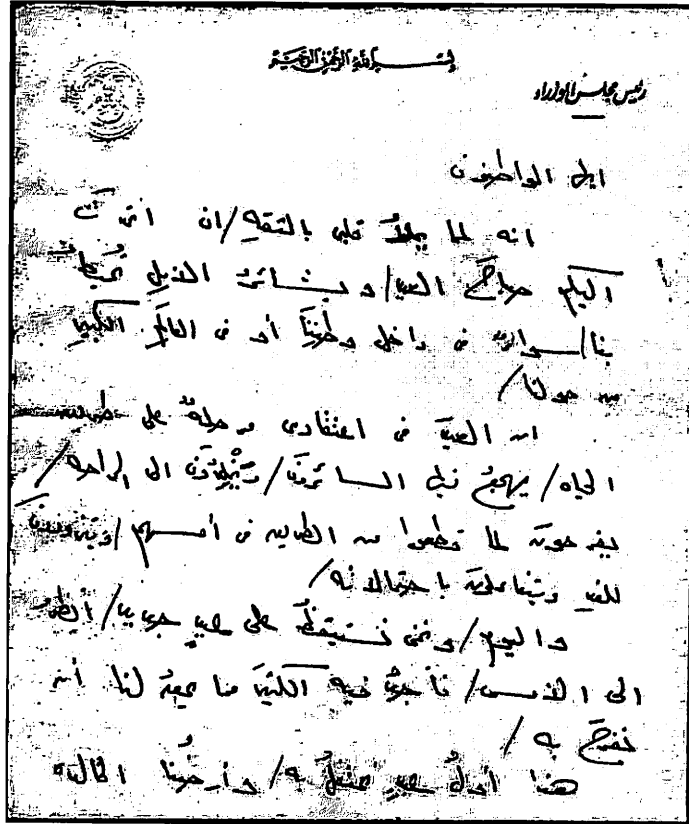 بسم الله الرحمن الرحيم
رئيس مجلس الوزراء
أيها المواطنون
انه لما يملأ قلبي بالثقة / ان اتحدث
اليكم صباح العيد / وبشائر الخير تحيط
بنا / سواء في داخل وطننا أو في العالم الكبير
من حولنا /
ان العيد في اعتقادي مرحلة على طريق
الحياه / يهجع فيها السائرون / ويخلدون الى الراحه /
يفرحون لما قطعوا من الطريق في أمسهم / ويتزودون
للغد ويتفاءلون باحتمالاته /
واليوم / ونحن نستيقظ على عيد جديد / أنظر
الى الأمس / فأجد فيه الكثير مما يحق لنا أن
نفرح به /
هذا أول عيد نحتفل به / وأرضنا خالية